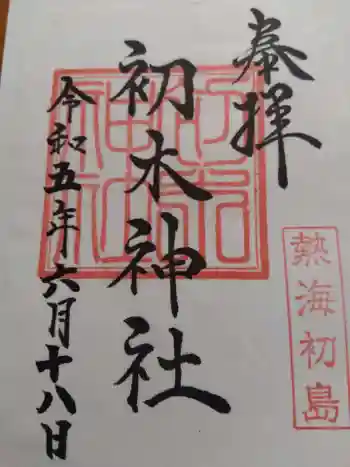 奉拝
初木神社
令和五年六月十八日
熱海初島